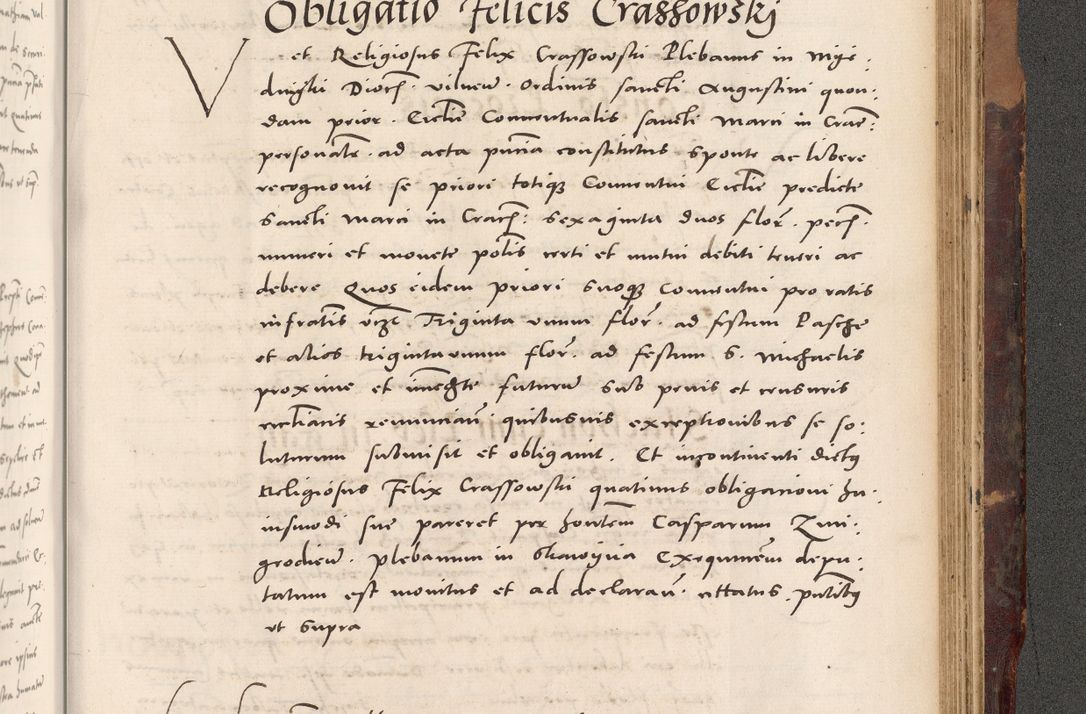 Obligatio Felicis Crassowskj
Vet Religiosus Felix Crassowski Plebanus in nige:
dinski Dioc. vilnen. ordinis sancti Augustini quon:
dam prior Ecclie Conventualis sancti Marci in Crac:
personaliter ad acta pntia constitutus sponte ac libere
recognovit se priori totique Conventui Ecclie predicte
Sancti Marci in Crac: sexaginta duos flor. pecc.
numeri et monete polis certi et mutui debiti teneri ac
debere Quos eidem priori suoque Conventui pro ratis
infratis vczt Triginta unum flor. ad festum Pasche
et alios triginta unum flor. ad festum S. Michaelis
proxime et imedte futurum sub penis et censuris
eccliacis renuncians quibusvis exceptionibus se so:
luturum submisit et obligavit. Et incontinenti dictus
Religiosus Felix Crassowski quatinus obligationi hu:
iusmodi sue pareret per hontem Casparum Zmi:
grodien. Plebanum in Exequutem depu:
tatum est monitus et ad declaran. cttatus. pntibus
ut supra